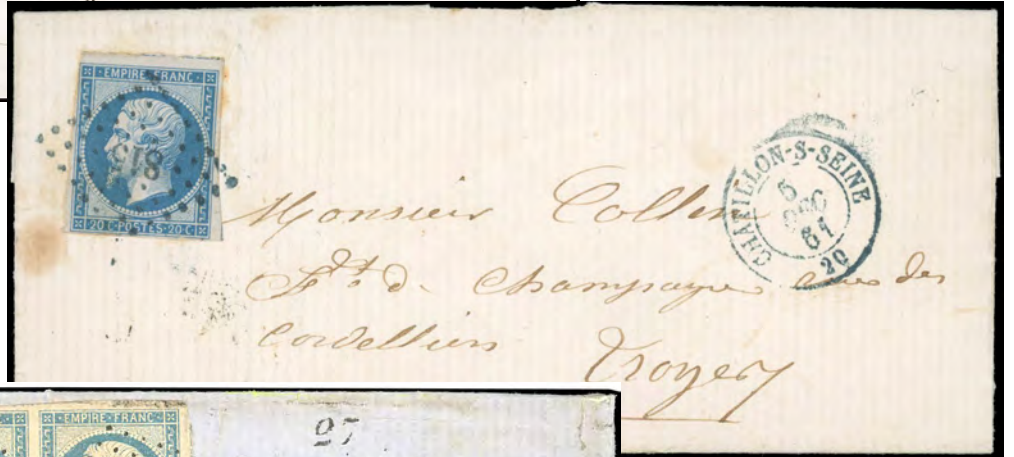 EMPIRE FRANC
815
20 C · POSTES · 20 C
CHATILLON-S-SEINE
5
DEC
61
20
Monsieur Collin
Champagne rue des
Cordelliers
Troyes
EMPIRE FRANC
27